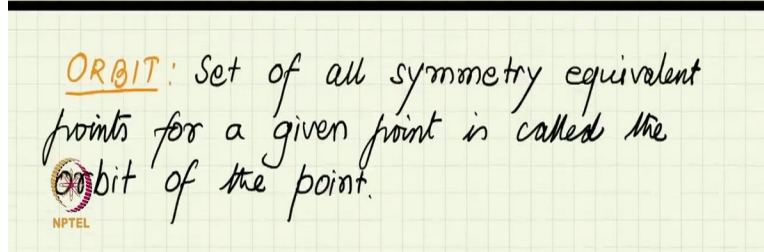 ORBIT: Set of all symmetry equivalent
points for a given point is called the
orbit of the point.
NPTEL